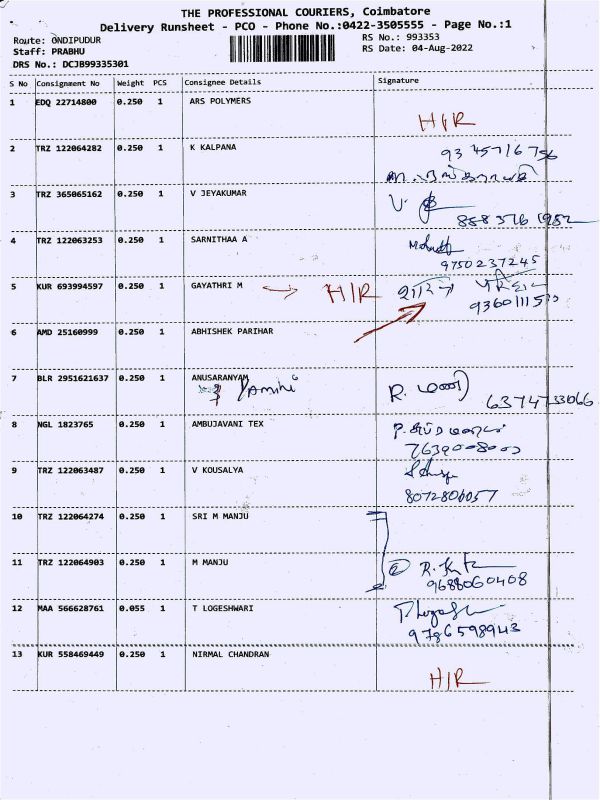 THE PROFESSIONAL COURIERS, Coimbatore
Delivery Runsheet - PCO - Phone No.:0422-3505555 - Page No.:1
Route: ONDIPUDUR
RS No.: 993353
Staff: PRABHU
RS Date: 04-Aug-2022
DRS No.: DCJB99335301
S No Consignment No Weight PCS Consignee Details Signature
1 EDQ 22714800 0.250 1 ARS POLYMERS
H/R
2 TRZ 122064282 0.250 1 K KALPANA
93 45716 756
3 TRZ 365065162 0.250 1 V JEYAKUMAR
V.
4 TRZ 122063253 0.250 1 SARNITHAA A
9750237245
5 KUR 693994597 0.250 1 GAYATHRI M → H/R
6 AMD 25160999 0.250 1 ABHISHEK PARIHAR
7 BLR 2951621637 0.250 1 ANUSARANYAM
R. மணி
6374733066
8 NGL 1823765 0.250 1 AMBUJAVANI TEX
9 TRZ 122063487 0.250 1 V KOUSALYA
8072806057
10 TRZ 122064274 0.250 1 SRI M MANJU
11 TRZ 122064903 0.250 1 M MANJU
② R.
9688060408
12 MAA 566628761 0.055 1 T LOGESHWARI
9786598943
13 KUR 558469449 0.250 1 NIRMAL CHANDRAN
H/R